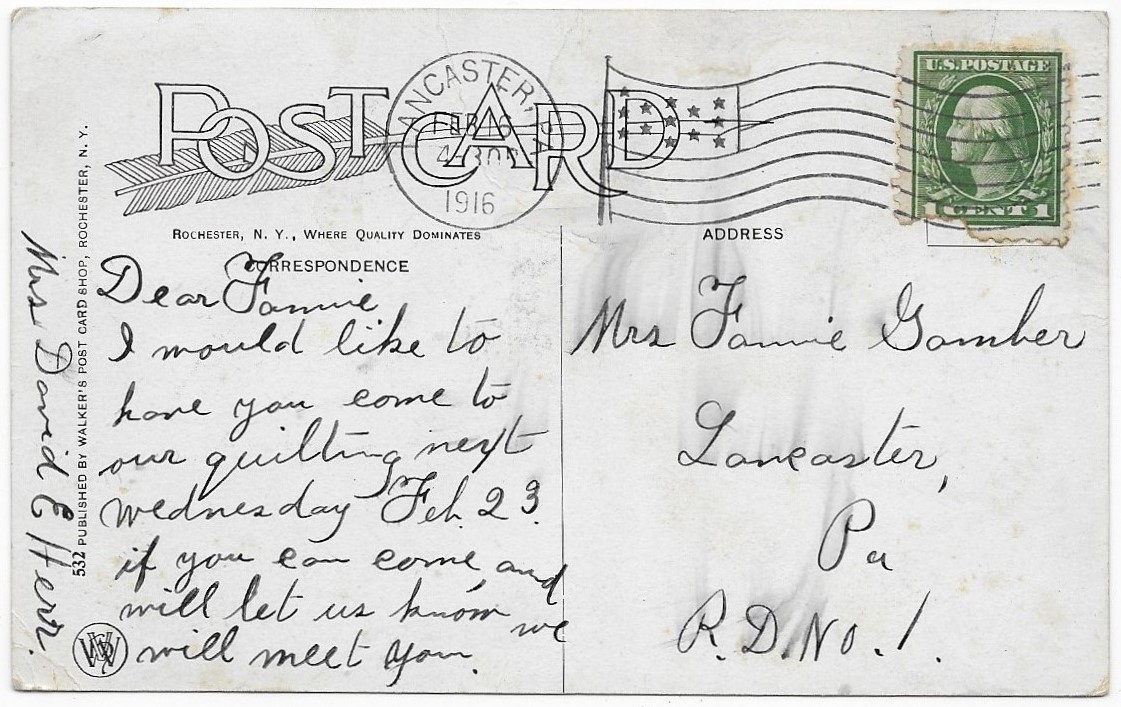 POST CARD
LANCASTER, PA
FEB 16
4 30 P
1916
U.S. POSTAGE
1 CENT 1
ROCHESTER, N. Y., WHERE QUALITY DOMINATES
CORRESPONDENCE
ADDRESS
Dear Fannie
I would like to
have you come to
our quilting next
wednesday Feb. 23.
if you can come, and
will let us know we
will meet you.
Mrs David E Herr.
532 PUBLISHED BY WALKER'S POST CARD SHOP, ROCHESTER, N. Y.
Mrs Fannie Gamber
Lancaster,
Pa
R.D. No. 1.